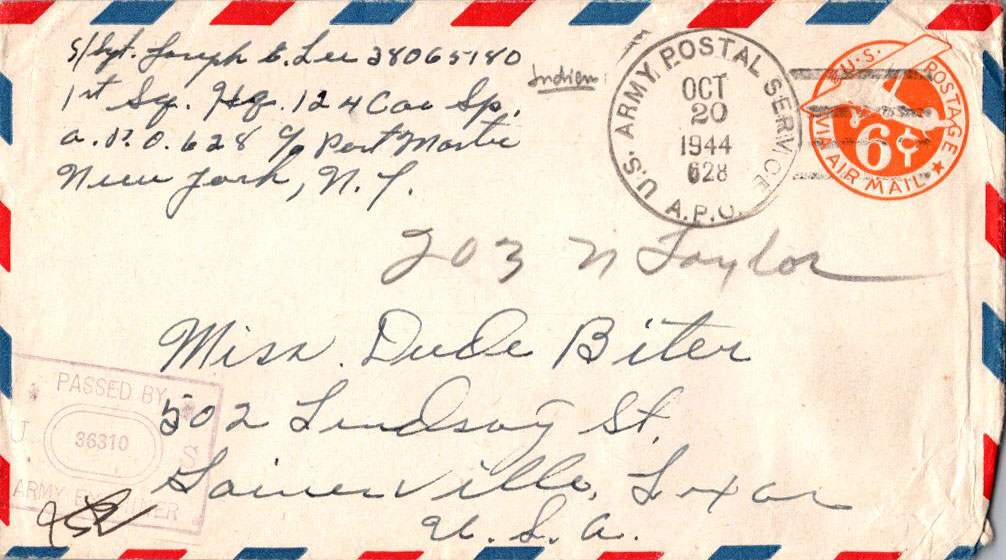 S/Sgt. Joseph E. Lee 38065180
1st Sq. Hq. 124 Cav Sp.
A.P.O. 628 c/o Post Master
New York, N.Y.
Indien
U.S. ARMY POSTAL SERVICE
OCT
20
1944
628
A.P.O.
U.S. POSTAGE
6¢
VIA AIR MAIL
203 N Taylor
Miss. Dude Biter
502 Lindsay St.
Gainesville, Texas
U.S.A.
PASSED BY
U 36310 S
ARMY EXAMINER